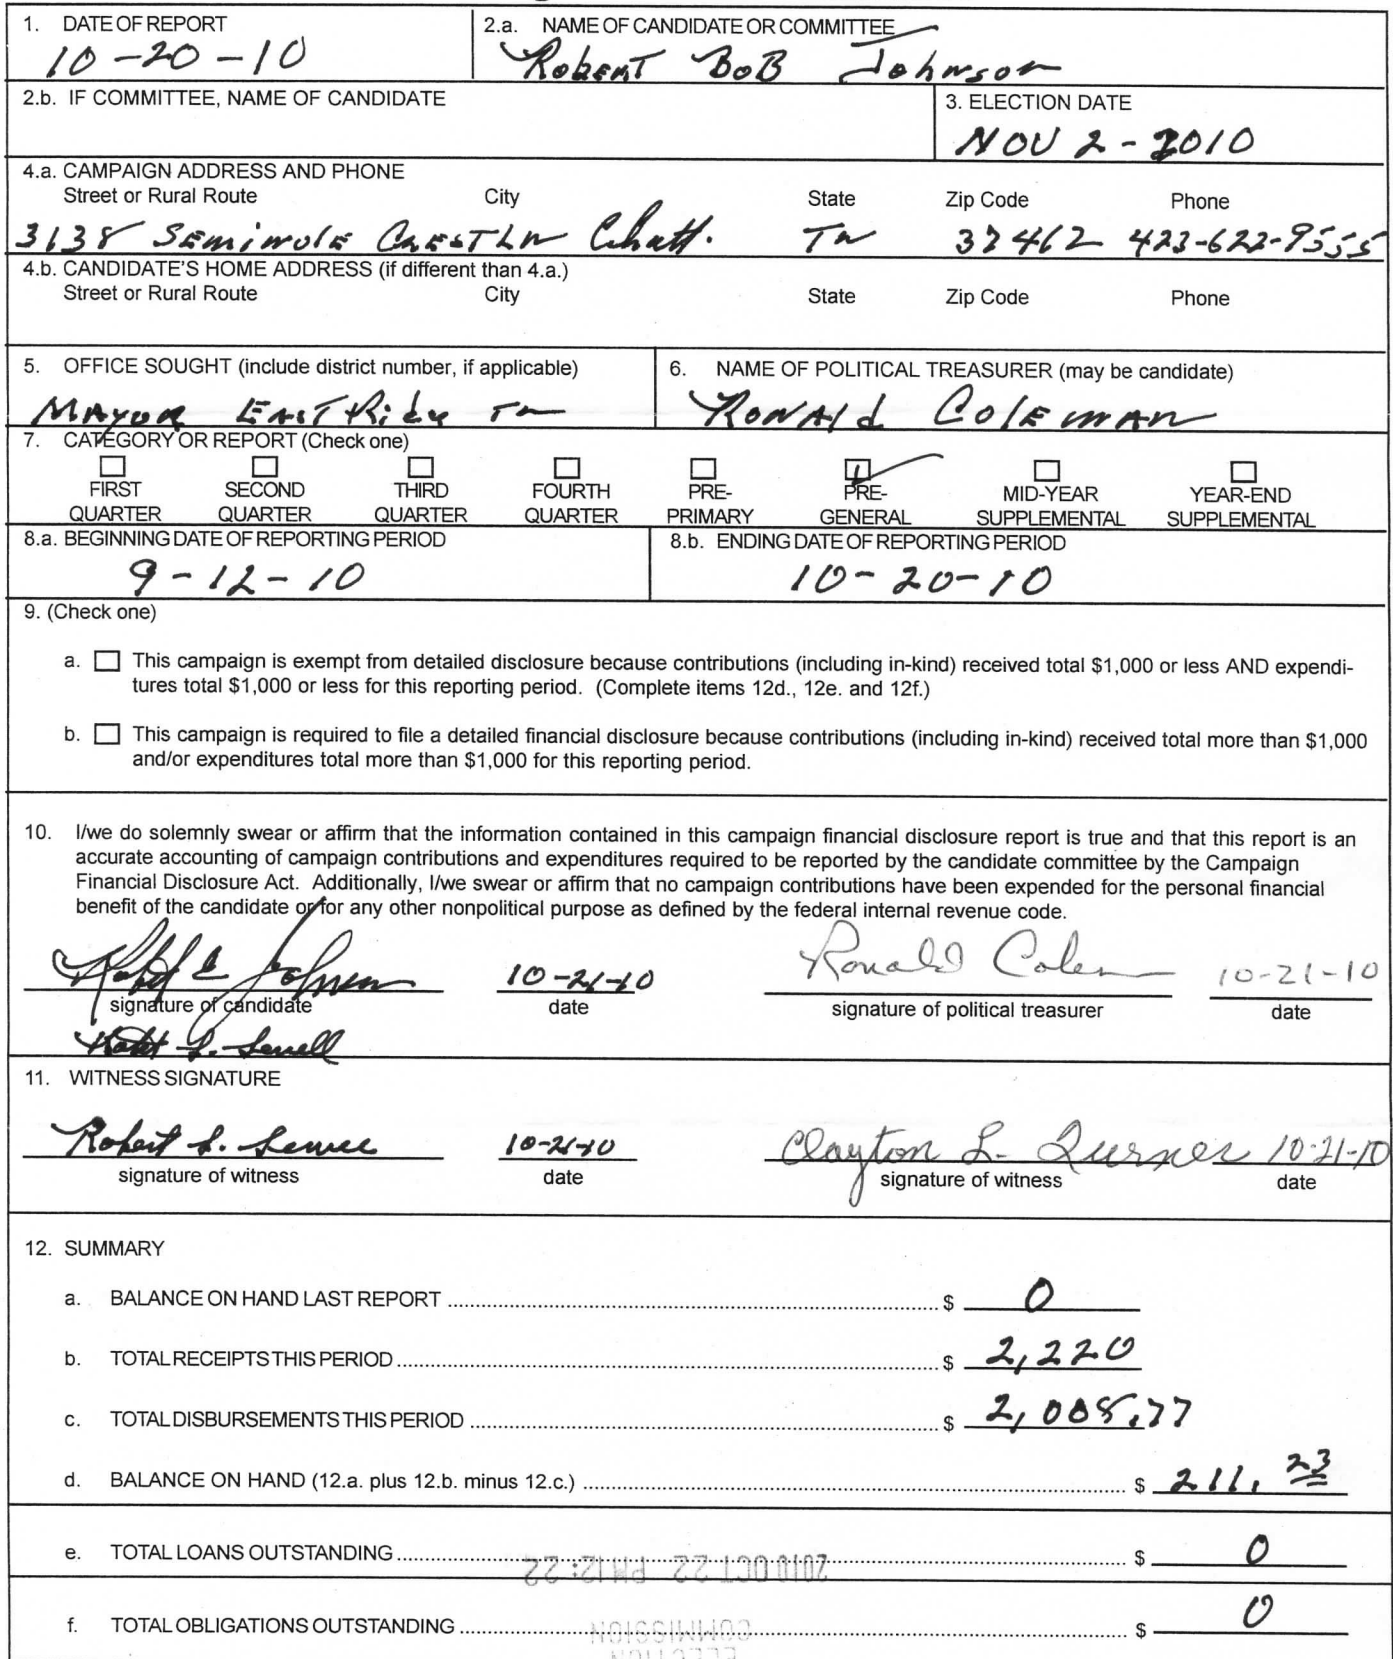 1. DATE OF REPORT
10-20-10
2.a. NAME OF CANDIDATE OR COMMITTEE
Robert Bob Johnson
2.b. IF COMMITTEE, NAME OF CANDIDATE
3. ELECTION DATE
NOV 2-2010
4.a. CAMPAIGN ADDRESS AND PHONE
Street or Rural Route City State Zip Code Phone
3138 Seminole Crest Ln Chatt. TN 37412 423-622-9555
4.b. CANDIDATE'S HOME ADDRESS (if different than 4.a.)
Street or Rural Route City State Zip Code Phone
5. OFFICE SOUGHT (include district number, if applicable)
Mayor East Ridge TN
6. NAME OF POLITICAL TREASURER (may be candidate)
Ronald Coleman
7. CATEGORY OR REPORT (Check one)
FIRST QUARTER
SECOND QUARTER
THIRD QUARTER
FOURTH QUARTER
PRE-PRIMARY
PRE-GENERAL
MID-YEAR SUPPLEMENTAL
YEAR-END SUPPLEMENTAL
8.a. BEGINNING DATE OF REPORTING PERIOD
9-12-10
8.b. ENDING DATE OF REPORTING PERIOD
10-20-10
9. (Check one)
a. This campaign is exempt from detailed disclosure because contributions (including in-kind) received total $1,000 or less AND expendi-
tures total $1,000 or less for this reporting period. (Complete items 12d., 12e. and 12f.)
b. This campaign is required to file a detailed financial disclosure because contributions (including in-kind) received total more than $1,000
and/or expenditures total more than $1,000 for this reporting period.
10. I/we do solemnly swear or affirm that the information contained in this campaign financial disclosure report is true and that this report is an
accurate accounting of campaign contributions and expenditures required to be reported by the candidate committee by the Campaign
Financial Disclosure Act. Additionally, I/we swear or affirm that no campaign contributions have been expended for the personal financial
benefit of the candidate or for any other nonpolitical purpose as defined by the federal internal revenue code.
Johnson 10-21-10 Ronald Colem 10-21-10
signature of candidate date signature of political treasurer date
11. WITNESS SIGNATURE
Robert 10-21-10 Clayton L. Turner 10-21-10
signature of witness date signature of witness date
12. SUMMARY
a. BALANCE ON HAND LAST REPORT $ 0
b. TOTAL RECEIPTS THIS PERIOD $ 2,220
c. TOTAL DISBURSEMENTS THIS PERIOD $ 2,008.77
d. BALANCE ON HAND (12.a. plus 12.b. minus 12.c.) $ 211.23
e. TOTAL LOANS OUTSTANDING $ 0
2010 OCT 22 PM 12:22
f. TOTAL OBLIGATIONS OUTSTANDING $ 0
COMMISSION
ELECTION